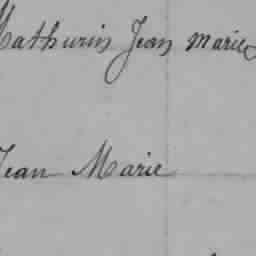 Mathurin Jean Marie
Jean Marie